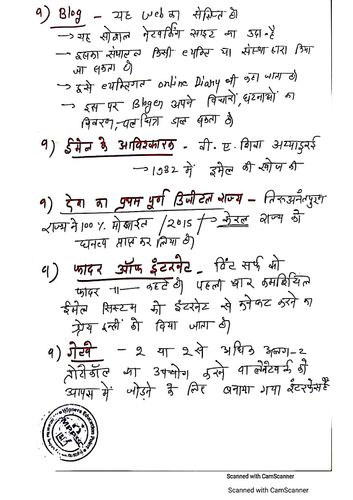 १) Blog - यह Web का संक्षिप्त है।
→ यह सोशल नेटवर्किंग साइट का उदा. है
→ इसका संचालन किसी व्यक्ति या संस्था द्वारा किया
जा सकता है।
→ इसे व्यक्तिगत online Diary भी कहा जाता है।
→ इस पर Bloger अपने विचारों, घटनाओं का
विवरण, चलचित्र डाल सकता है।
१) ईमेल के आविष्कारक - वी. ए. शिवा अय्यादुरई
→ 1982 में ईमेल की खोज की
१) देश का प्रथम पूर्ण डिजीटल राज्य - तिरुअनंतपुरम
राज्य ने 100% मोबाइल / 2015 / → केरल राज्य को
प्राप्त कर लिया है।
१) फादर ऑफ इंटरनेट - विंट सर्फ को
फादर —॥— कहते है। पहली बार कमर्शियल
ईमेल सिस्टम को इंटरनेट से कनेक्ट करने का
श्रेय इन्हीं को दिया जाता है।
१) गेटवे - 2 या 2 से अधिक अलग-2
प्रोटोकॉल का उपयोग करने वाले नेटवर्क को
आपस में जोड़ने के लिए बनाया गया इंटरफेस है
Scanned with CamScanner
Scanned with CamScanner